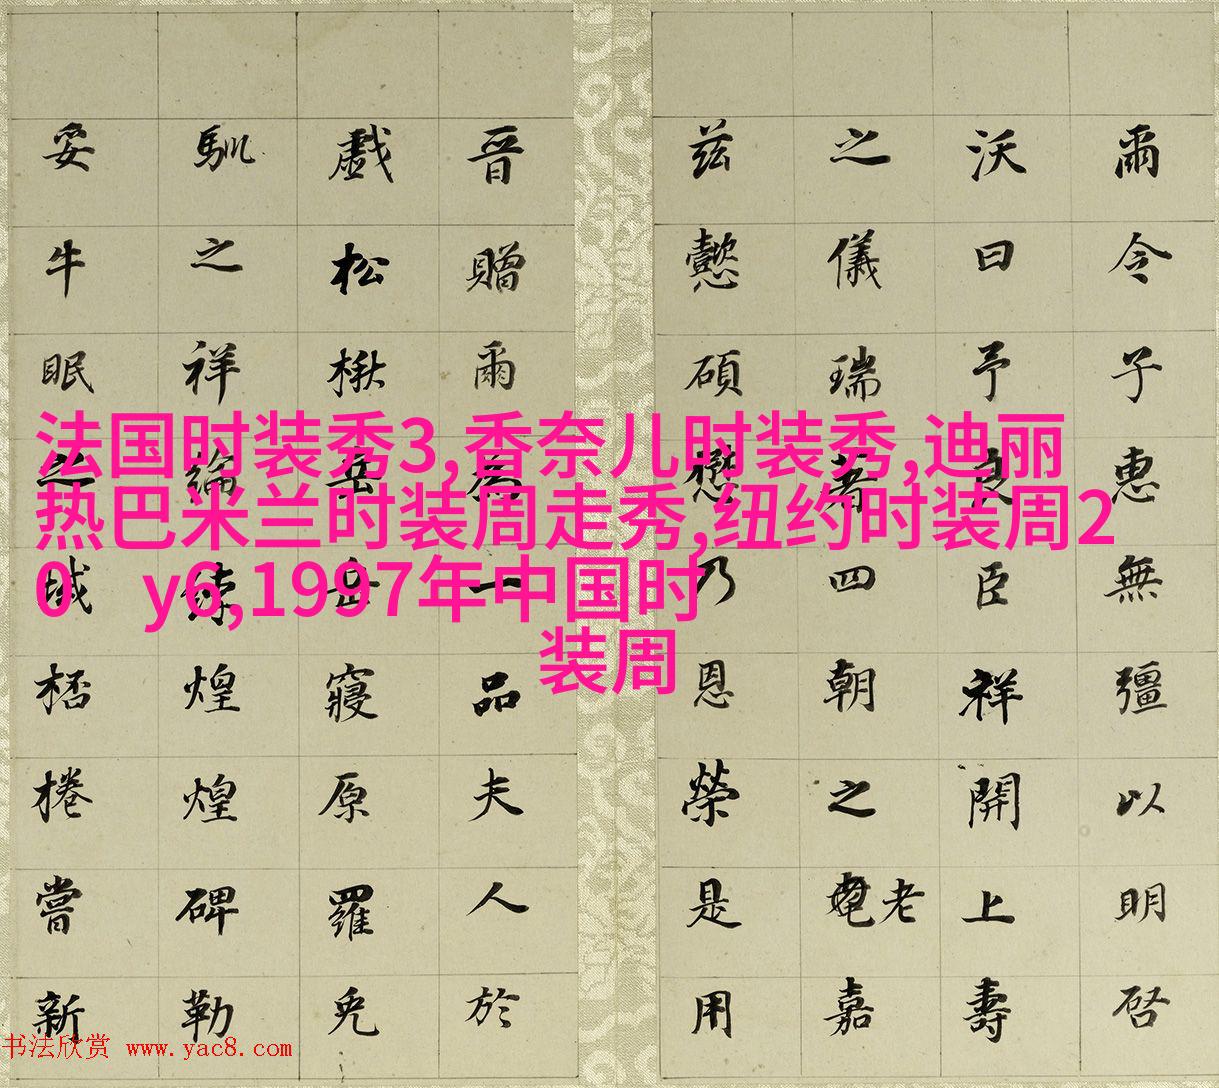 爾令子惠無彊以明啓
沃曰予良臣祥開上壽
之儀瑞著四朝之耄老嘉
茲懿碩懋乃恩榮是用
晉贈爾為一品夫人於
戲松楸岳岳寢原羅兕
馴之祥綸綍煌煌碑勒
妥牛眠之域桮棬嘗新
法国时装秀3,香奈儿时装秀,迪丽
热巴米兰时装周走秀,纽约时装周2
0 y6,1997年中国时
装周
书法欣赏 www.yac8.com